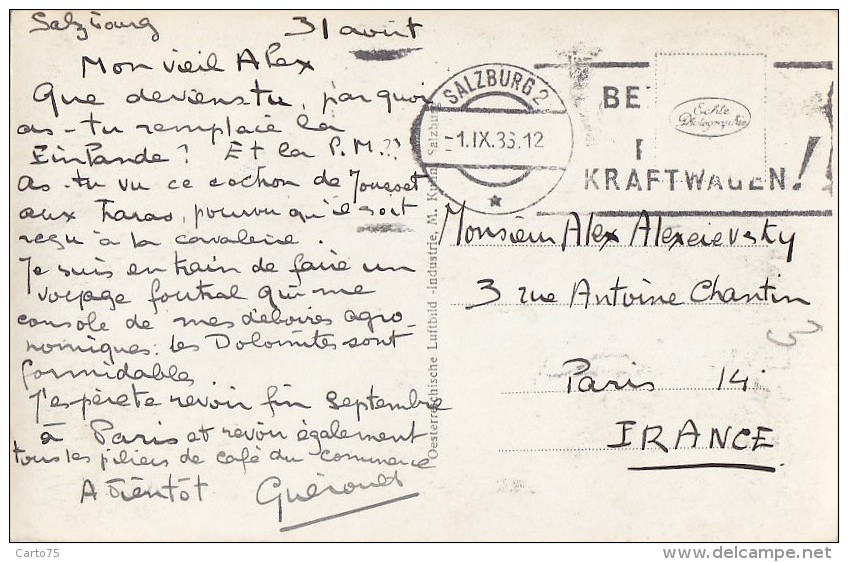 Salzbourg 31 août
Mon vieil Alex
Que deviens tu, par quoi
as-tu remplacé la
? Et la P.M.??
as-tu vu ce cochon de
aux Haras, pourvu qu'il soit
reçu à la cavalerie.
Je suis en train de faire un
voyage foutral qui me
console de mes déboires agro-
nomiques: les Dolomites sont
formidables
J'espère te revoir fin septembre
à Paris et revoir également
tous les piliers de café du commerce
A bientôt Guérouet
Oesterreichische Luftbild-Industrie, M. Salzburg
SALZBURG 2
-1.IX.36.12
BE
KRAFTWAGEN!
Echte
Photographie
Monsieur Alex Alexeievsky
3 rue Antoine Chantin
Paris 14
FRANCE
3
Carto75
www.delcampe.net